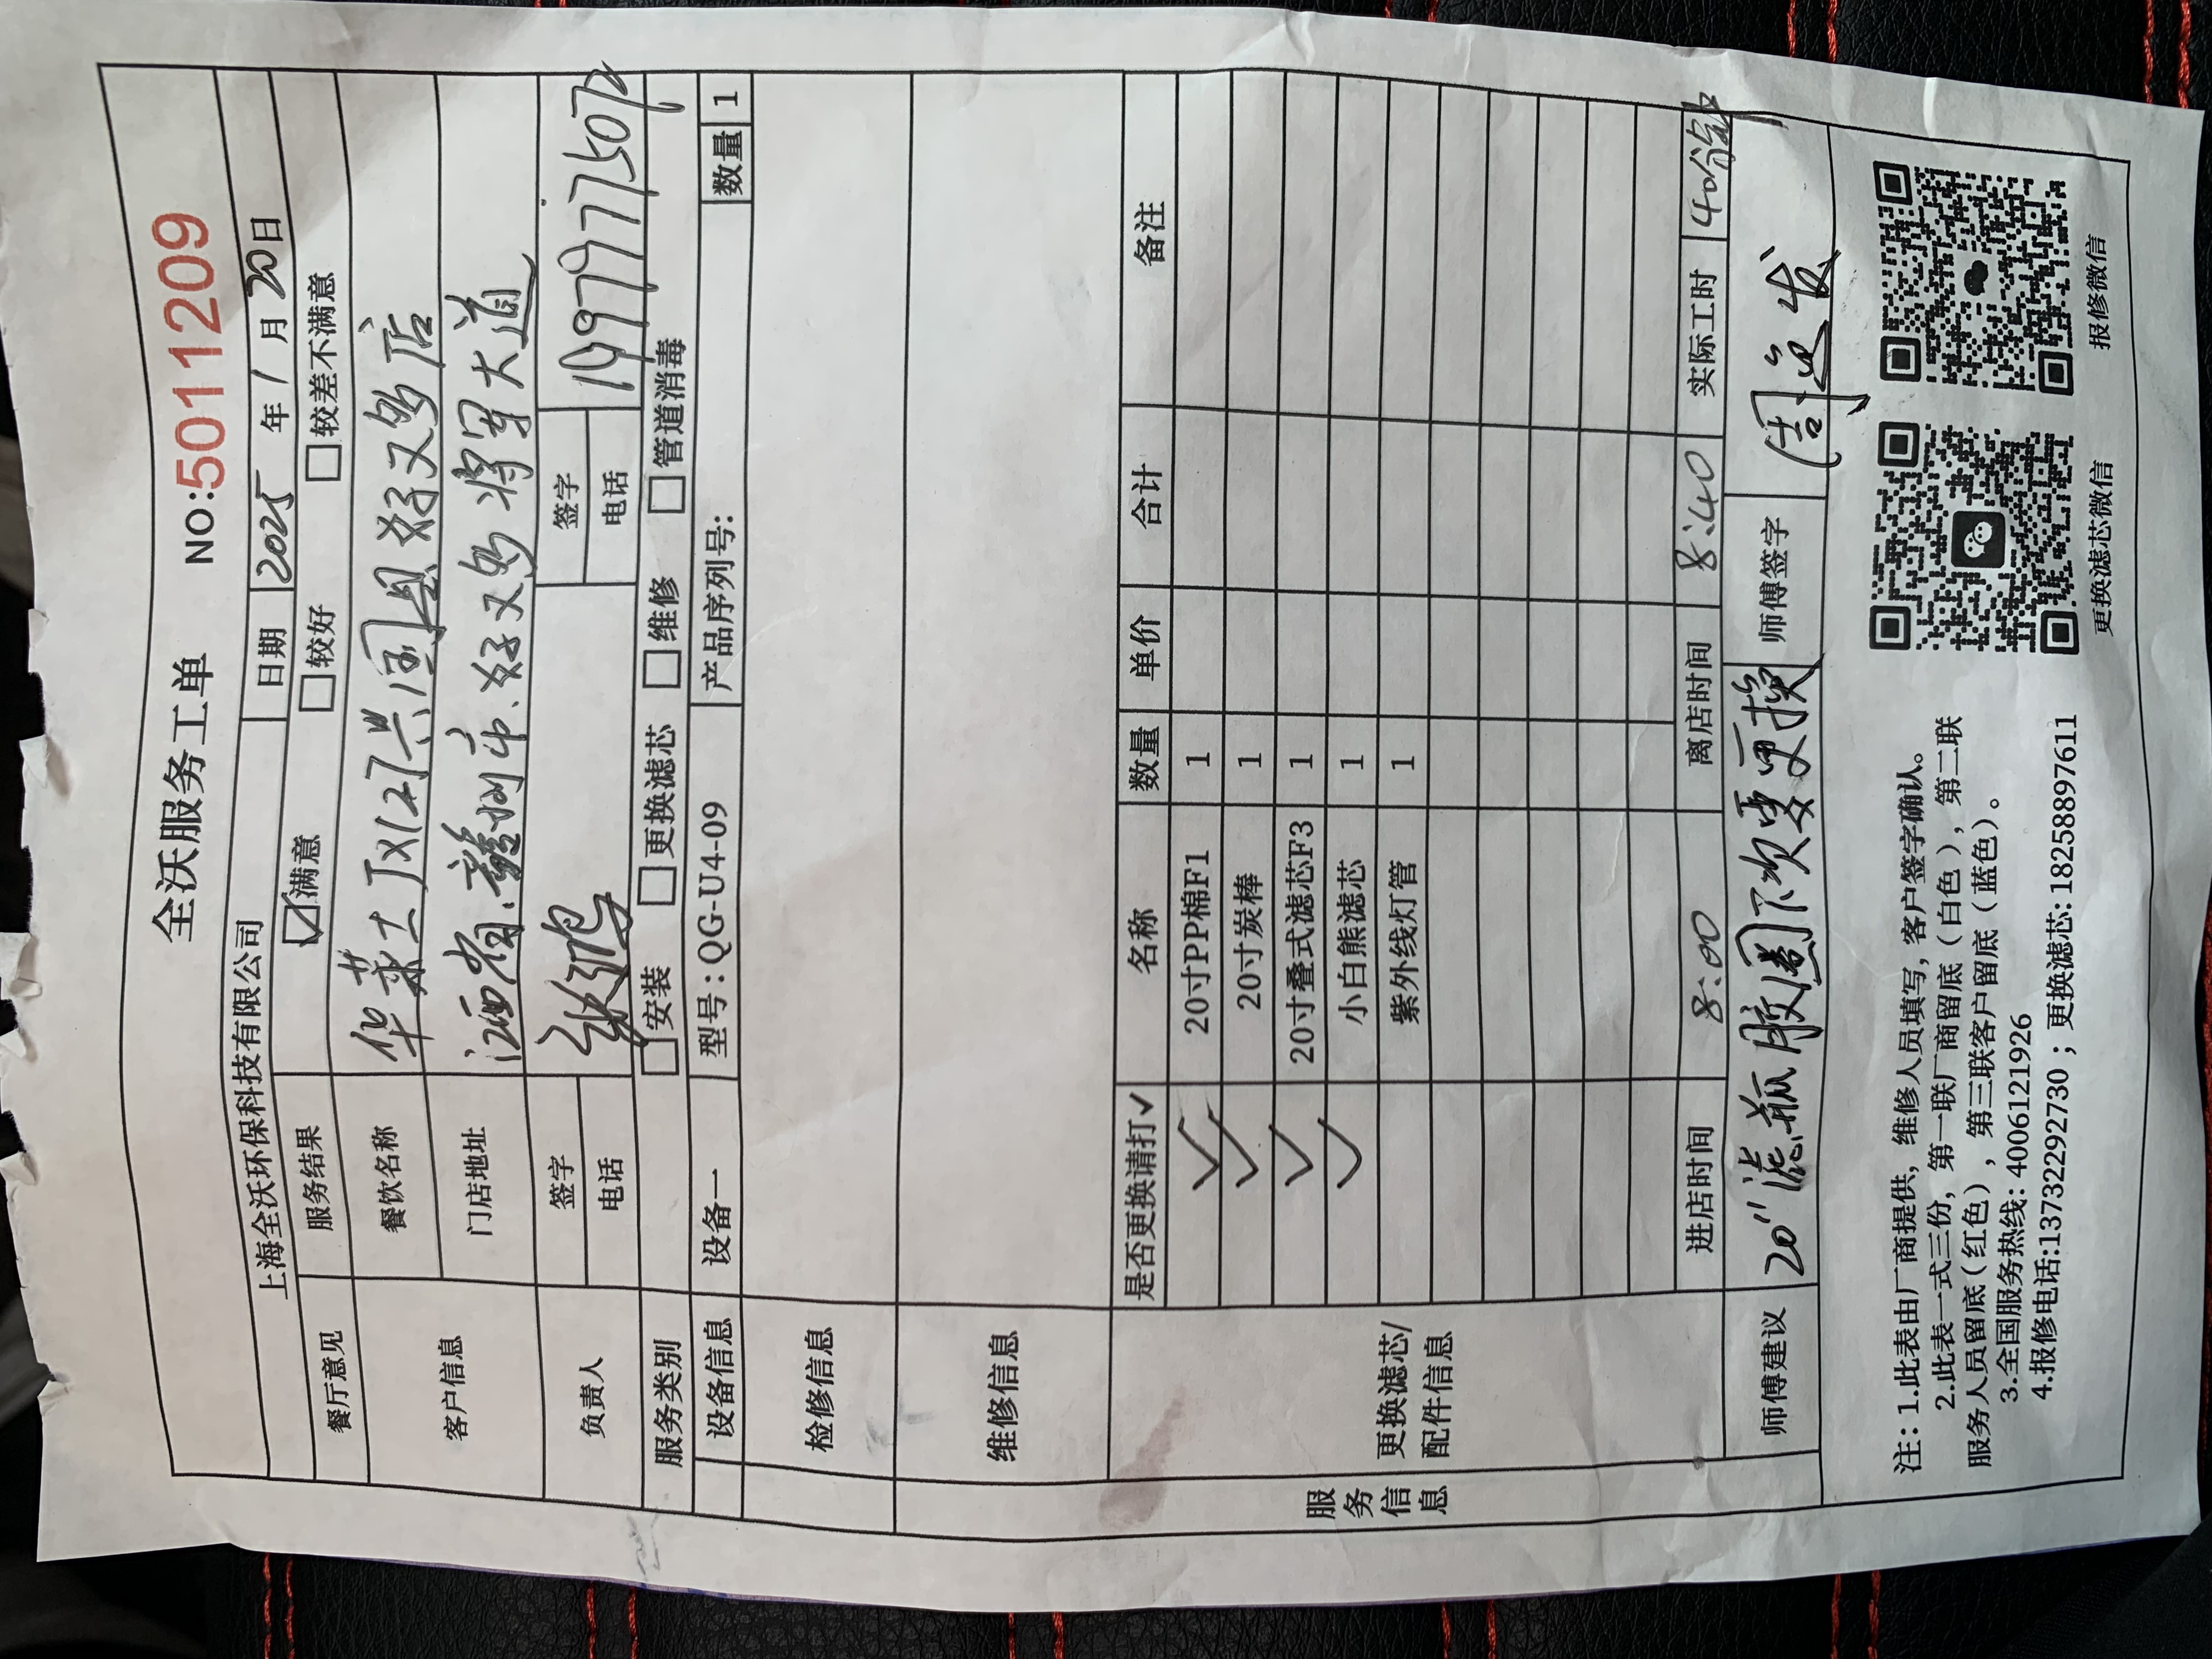 全沃服务工单 NO:5011209
上海全沃环保科技有限公司 日期 2025 年 1 月 20 日
餐厅意见 服务结果 ☑满意 □较好 □较差不满意
客户信息 餐饮名称 华莱士JX127兴国县好又多店
门店地址 江西省.赣州市.好又多将军大道
负责人 签字 签字
电话 电话 199777507
服务类别 □安装 □更换滤芯 □维修 □管道消毒
设备信息 设备一 型号：QG-U4-09 产品序列号： 数量 1
检修信息
维修信息
服务信息
更换滤芯/配件信息
是否更换请打✓ 名称 数量 单价 合计 备注
✓ 20寸PP棉F1 1
✓ 20寸炭棒 1
✓ 20寸叠式滤芯F3 1
✓ 小白熊滤芯 1
紫外线灯管 1
进店时间 8:00 离店时间 8:40 实际工时 40分钟
师傅建议 20"滤瓶胶圈下次要更换 师傅签字
注：1.此表由厂商提供，维修人员填写，客户签字确认。
2.此表一式三份，第一联厂商留底（白色），第二联
服务人员留底（红色），第三联客户留底（蓝色）。
3.全国服务热线：4006121926
4.报修电话:13732292730；更换滤芯：18258897611
更换滤芯微信 报修微信